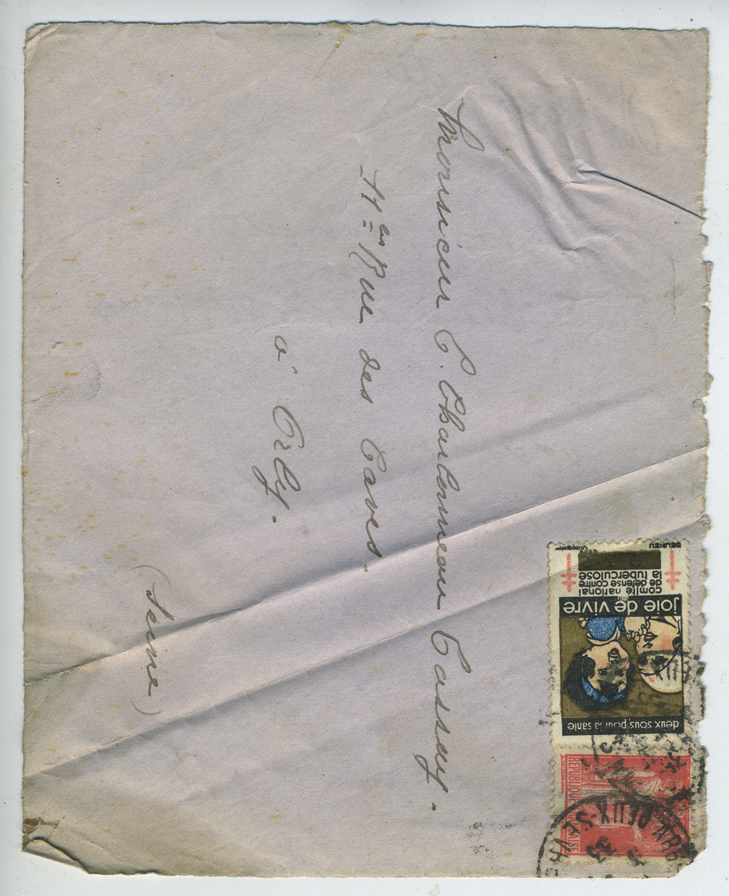 Monsieur C. Charbonneau Cassay.
11 Rue des Caves.
à Orly.
(Seine)
deux sous pour la santé
joie de vivre
comité national
de défense contre
la tuberculose